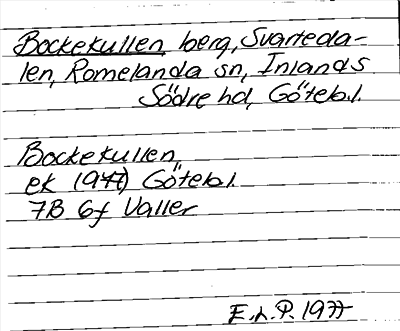 Bockekullen, berg, Svarteda-
len, Romelanda sn, Inlands
Södre hd, Götebl.
Bockekullen,
ek (1977) Götebl.
7B 6f Valler
E.L.P. 1977